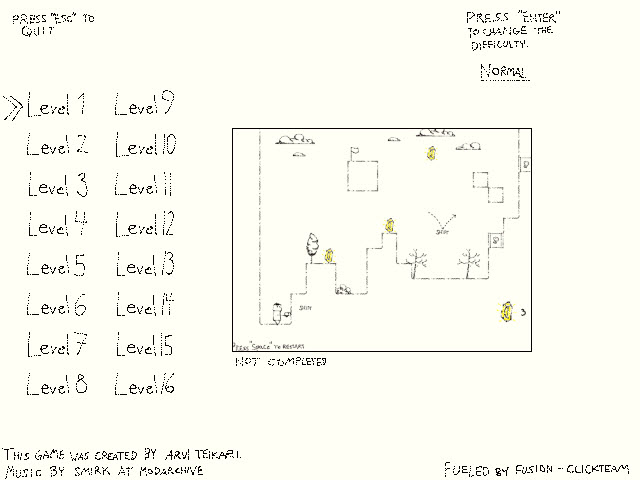 PRESS "ESC" TO
QUIT
PRESS "ENTER"
TO CHANGE THE
DIFFICULTY.
NORMAL
Level 1
Level 9
Level 2
Level 10
Level 3
Level 11
Level 4
Level 12
Level 5
Level 13
Level 6
Level 14
Level 7
Level 15
Level 8
Level 16
SHIFT
3
PRESS "SPACE" TO RESTART
NOT COMPLETED
THIS GAME WAS CREATED BY ARVI TEIKARI.
MUSIC BY SMIRK AT MODARCHIVE
FUELED BY FUSION - CLICKTEAM